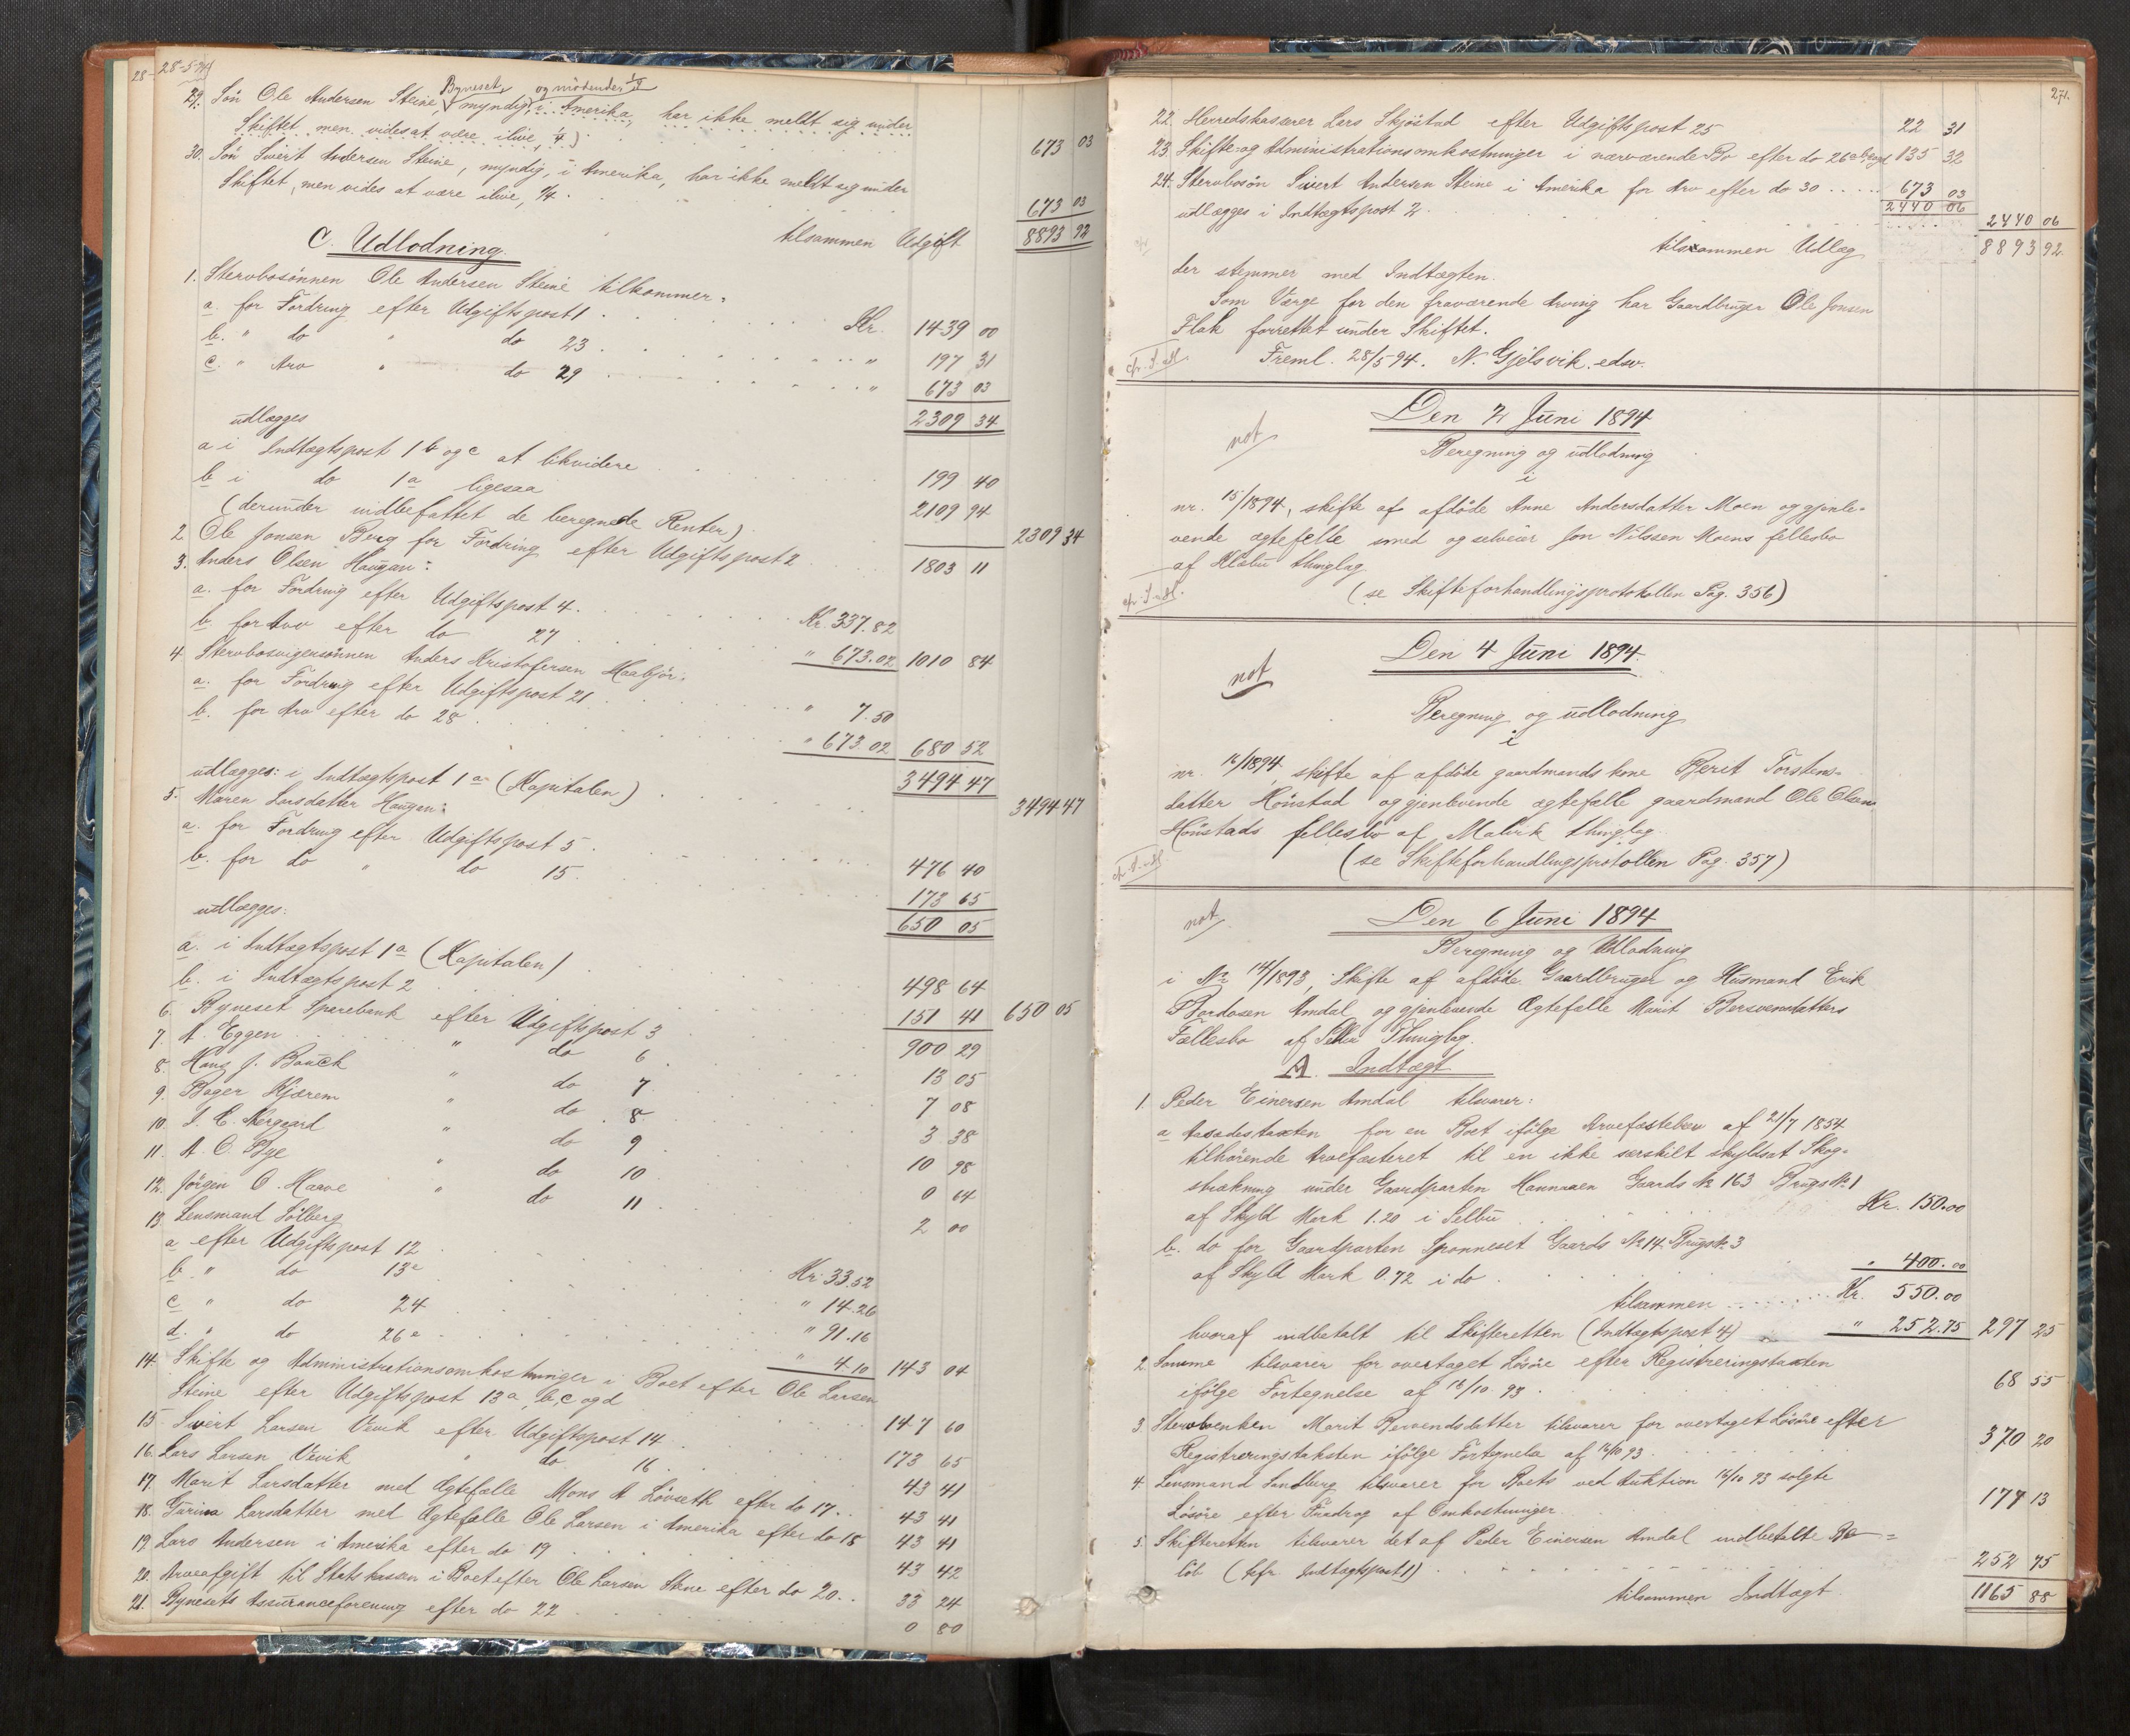 28-5-94
29. Søn Ole Andersen Steine, Byneset, myndig, og mødende, 1/4
i Amerika, har ikke meldt sig under
Skiftet men vides at være ilive, 1/4) 673 03
30. Søn Sivert Andersen Steine, myndig, i Amerika, har ikke meldt sig under
Skiftet, men vides at være ilive, 1/4. 673 03
tilsammen Udgift 8893 92
C. Udlodning.
1. Stervbosønnen Ole Andersen Steine tilkommer:
a. for Fordring efter Udgiftspost 1. Kr. 1439 00
b. " do " do 23. " 197 31
c. " Arv " do 29 " 673 03
2309 34
udlægges
a i Indtægtspost 1 b og c at likvidere 199 40
b i do 1a ligesaa 2109 94
(derunder indbefattet de beregnede Renter) 2309 34
2. Ole Jonsen Berg for Fordring efter Udgiftspost 2 1803 11
3. Anders Olsen Haugan:
a. for Fordring efter Udgiftspost 4. Kr. 337.82
b. for Arv efter do 27 " 673.02 1010 84
4. Stervbosvigersønnen Anders Kristofersen Haabjør:
a. for Fordring efter Udgiftspost 21 " 7.50
b. for Arv efter do 28. " 673.02 680 52
3494 47
udlægges: i Indtægtspost 1a (Kapitalen) 3494 47
5. Maren Larsdatter Haugan:
a. for Fordring efter Udgiftspost 5. 476 40
b. for do " do 15. 173 65
650 05
udlægges:
a. i Indtægtspost 1a (Kapitalen) 498 64
b. i Indtægtspost 2 151 41 650 05
6. Byneset Sparebank efter Udgiftspost 3 900 29
7. A. Eggen " do 6 13 05
8. Hans J. Bauck " do 7. 7 08
9. Bager Kjærem " do 8 3 38
10. I. C. Nergaard " do 9 10 98
11. A. O. Bye " do 10 0 64
12. Jørgen O. Harve " do 11 2 00
13. Lensmand Solberg
a efter Udgiftspost 12 Kr. 33.52
b. " do 13e " 14.26
c " do 24 " 91.16
d. " do 26e " 4.10 143 04
14. Skifte og Administrationsomkostninger i Boet efter Ole Larsen
Steine efter Udgiftspost 13a, b, c og d 147 60
15. Sivert Larsen Vevik efter Udgiftspost 14 173 65
16. Lars Larsen Vevik " do 16 43 41
17. Marit Larsdatter med Ægtefælle Mons A Løvseth efter do 17 43 41
18. Gurina Larsdatter med Ægtefælle Ole Larsen i Amerika efter do 18 43 41
19. Lars Andersen i Amerika efter do 19 43 42
20. Arveafgift til Statskassen i Boet efter Ole Larsen Steine efter do 20 33 24
21. Bynesets Assuranceforening efter do 22 0 80
271.
22. Herredskasserer Lars Skjøstad efter Udgiftspost 25 22 31
23. Skifte- og Administrationsomkostninger i nærværende Bo efter do 26 135 32
24. Stervbosøn Sivert Andersen Steine i Amerika for Arv efter do 30 673 03
2440 06
udlægges i Indtægtspost 2. 2440 06
tilsammen Udlæg 8893 92
der stemmer med Indtægten.
Som Værge for den fraværende Arving har Gaardbruger Ole Jonsen
Flak forrettet under Skiftet.
Freml. 28/5 94. N. Gjelsvik. edsv.
Den 2 Juni 1894
not
Beregning og udlodning
i
nr. 15/1894, skifte af afdøde Anne Andersdatter Moen og gjenle-
vende ægtefelle smed og selveier Jon Nilssen Moens fellesbo
af Klæbu thinglag
(se Skifteforhandlingsprotokollen Pag. 356)
Den 4 Juni 1894.
not
Beregning og udlodning
i
nr. 16/1894 skifte af afdøde gaardmandskone Berit Torstens-
datter Hønstad og gjenlevende ægtefælle gaardmand Ole Olsen
Hønstads fellesbo af Malvik thinglag
(se Skifteforhandlingsprotokollen Pag. 357)
Den 6 Juni 1894
not
Beregning og Udlodning
i No 14/1893, Skifte af afdøde Gaardbruger og Husmand Erik
Bordosen Amdal og gjenlevende Ægtefælle Marit Bersvensdatters
Fællesbo af Selbu Thinglag.
A. Indtægt
1. Peder Einersen Amdal tilsvarer:
a Aasædestaxten for en Boet ifølge Arvefæstebrev af 21/7 1854
tilhørende Arvefæsteret til en ikke særskilt skyldsat Skog-
strækning under Gaardparten Hannaaen Gaards No 163 Brugs No 1
af Skyld Mark 1.20 i Selbu Kr. 150.00
b. do for Gaardparten Sponneset Gaards No 14 Brugs No 3
af Skyld Mark 0.72 i do " 400.00
tilsammen Kr. 550.00
hvoraf indbetalt til Skifteretten (Indtægtspost 4) " 252.75 297 25
2. Samme tilsvarer for overtaget Løsøre efter Registreringstaxten
ifølge Fortegnelse af 16/10 93. 68 55
3. Stervboenken Marit Bersvendsdatter tilsvarer for overtaget Løsøre efter
Registreringstaksten ifølge Fortegnelse af 16/10 93. 370 20
4. Lensmand Sandberg tilsvarer for Boets ved Auktion 16/10 93 solgte
Løsøre efter Fradrag af Omkostninger 177 13
5. Skifteretten tilsvarer det af Peder Einersen Amdal indbetalte Be-
løb (kfr Indtægtspost 1) 252 75
tilsammen Indtægt. 1165 88